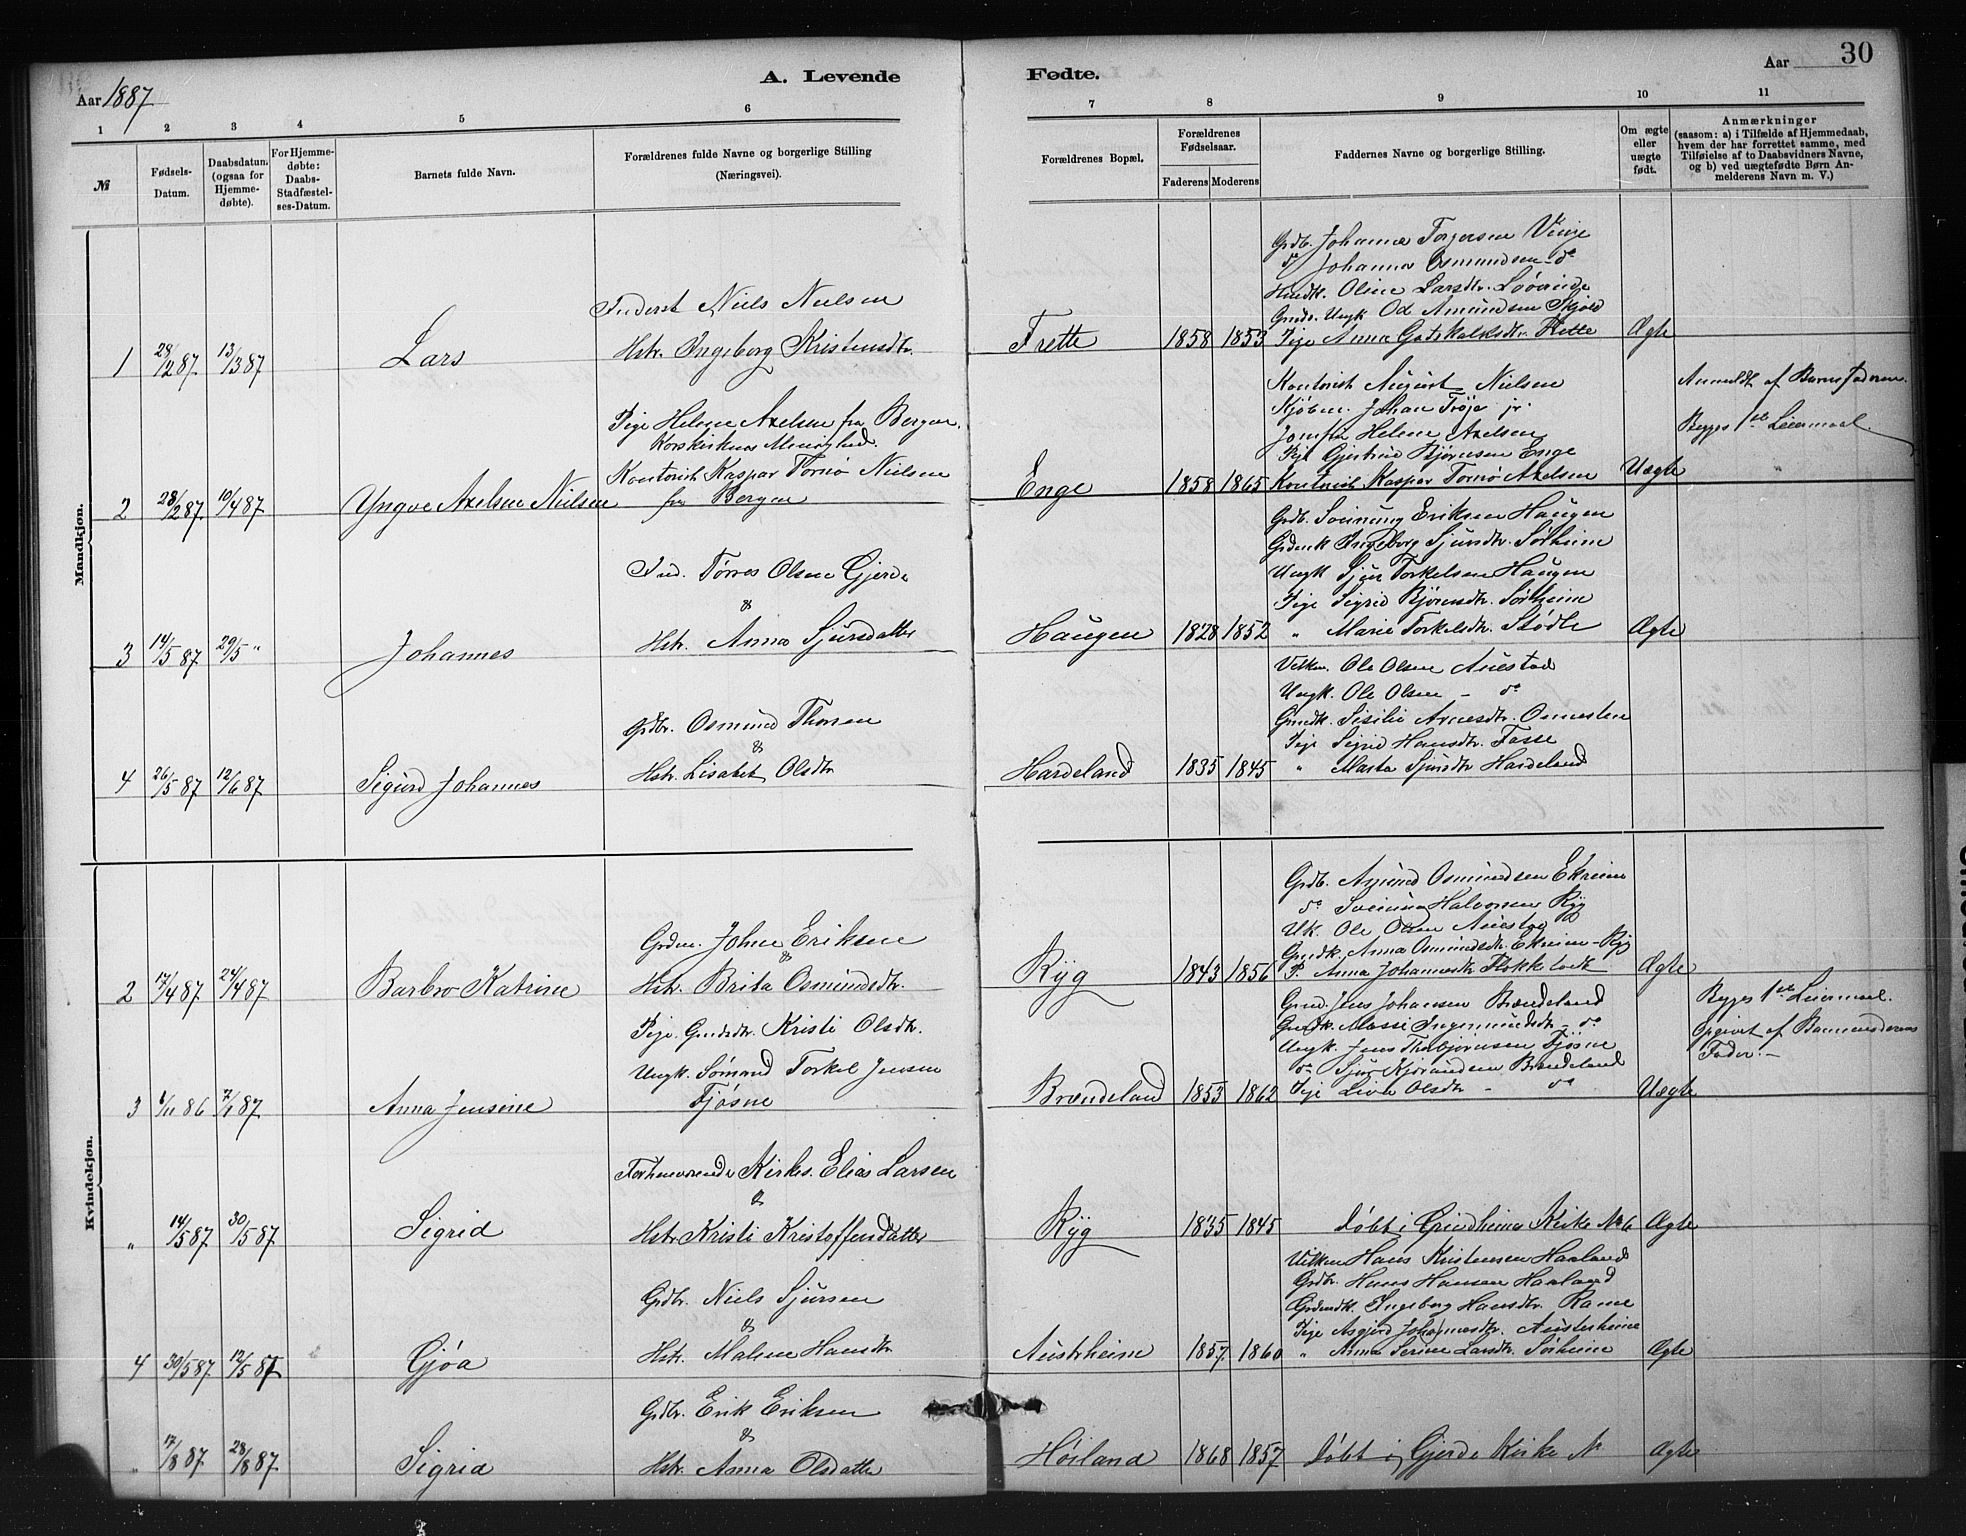 30
A. Levende Fødte.
Aar 1887
Aar
1 2 3 4 5 6 7 8 9 10 11
№
Fødsels-Datum.
Daabsdatum. (ogsaa for Hjemmedøbte).
For Hjemmedøbte: Daabs-Stadfæstelses-Datum.
Barnets fulde Navn.
Forældrenes fulde Navne og borgerlige Stilling (Næringsvei).
Forældrenes Bopæl.
Forældrenes Fødselsaar.
Faderens Moderens
Faddernes Navne og borgerlige Stilling.
Om ægte eller uægte født.
Anmærkninger
(saasom: a) i Tilfælde af Hjemmedaab, hvem der har forrettet samme, med Tilføielse af to Daabsvidners Navne, og b) ved uægtefødte Børn Anmelderens Navn m. V.)
Mandkjøn.
1 28/2 87. 13/3 87 Lars
Inderst Niels Nielsen
Hstr. Ingeborg Kristensdtr.
Frette 1858 1853
Grdb. Johannes Torgersen Vinje
do Johannes Osmundsen do
Oline Larsdtr.
Ungk Od Amundsen Skjold
Pige Anna Gotskalksdtr. Frette
Ægte
2 28/2 87. 10/4 87 Yngve Axelsen Nielsen
Pige Helene Axelsen fra Bergen,
Korskirkens Menighed.
Kontorist Kaspar Tornø Nielsen
fra Bergen
Enge 1858 1865
Kontorist August Nielsen
Kjøbm. Johan Trøje jr.
Jomfru Helene Axelsen
Gjertine Bjørnsen Enge
Kontorist Kaspar Tornø Axelsen
Uægte
Anmeldt af Barnefaderen.
Begges 1ste Leiermaal.
3 14/5 87. 29/5 " Johannes
Ind. Tørres Olsen Gjerde
&
Hstr. Anna Sjursdatter
Haugen 1828 1852
Grdb. Sveinung Eriksen Haugen
Ingeborg Sjursdtr. Sørheim
Ungk Sjur Torkelsen Haugen
Pige Sigrid Bjørnsdtr. Sørheim
" Marie Torkelsdtr. Stødle
Ægte
4 26/5 87. 12/6 87 Sigurd Johannes
Grdbr. Osmund Thorsen
&
Hstr. Lisabet Olsdtr
Hardeland 1835 1845
Ole Olsen Austad
Ungk. Ole Olsen - do
Sisilie Arnesdtr. Osmesten
Pige Sigrid Hansdtr. Fosse
" Marta Sjursdtr Hardeland
Kvindekjøn.
2 17/4 87 24/4 87 Barbro Katrine
Grdm. Johne Eriksen
&
Hstr. Brita Osmundsdtr.
Ryg 1843 1856
Grdb. Amund Osmundsen Ekreim
do Sveinung Halvorsen Ryg
Uk. Ole Olsen Austad
Anna Osmundsdtr. Ekreim - Ryg
P. Anna Johannesdtr
Ægte
3 6/11 86 7/1 87. Anna Jensine
Pige. Kristi Olsdtr.
Ungk. Sømand Torkel Jensen
Fjøsne
Brændeland 1853 1862
Jens Johansen Brændeland
Ingemundsdtr - do
Ungk. Jens Thorbjørnsen Fjøsne
do Sjur Brændeland
Pige Liva Olsdtr - do
Uægte
Begges 1ste Leiermaal.
Opgivet af Barnemoderens
Fader. -
" 14/5 87 30/5 87 Sigrid
Forhenværende Kirkes. Elias Larsen
&
Hstr Kristi Kristoffersdatter
Ryg 1835 1845
Døbt i Grindheims Kirke № 6
Ægte
4 30/5 87. 12/5 87 Gjøa
Grdbr. Niels Sjursen
&
Hstr. Malene Hansdtr
Austrheim 1857. 1860
Hans Kristensen Haaland
Grdbr. Hans Hansen Haaland
Ingeborg Hansdtr. Rame
Pige Asgjerd Johannesdtr. Austerheim
" Anna Serine Larsdtr. Sørheim
Ægte
" 17/8 87 28/8 87. Sigrid
Grdbr. Erik Eriksen
&
Hstr. Anna Olsdatter
Høiland 1868 1857
Døbt i Gjerde Kirke №
Ægte